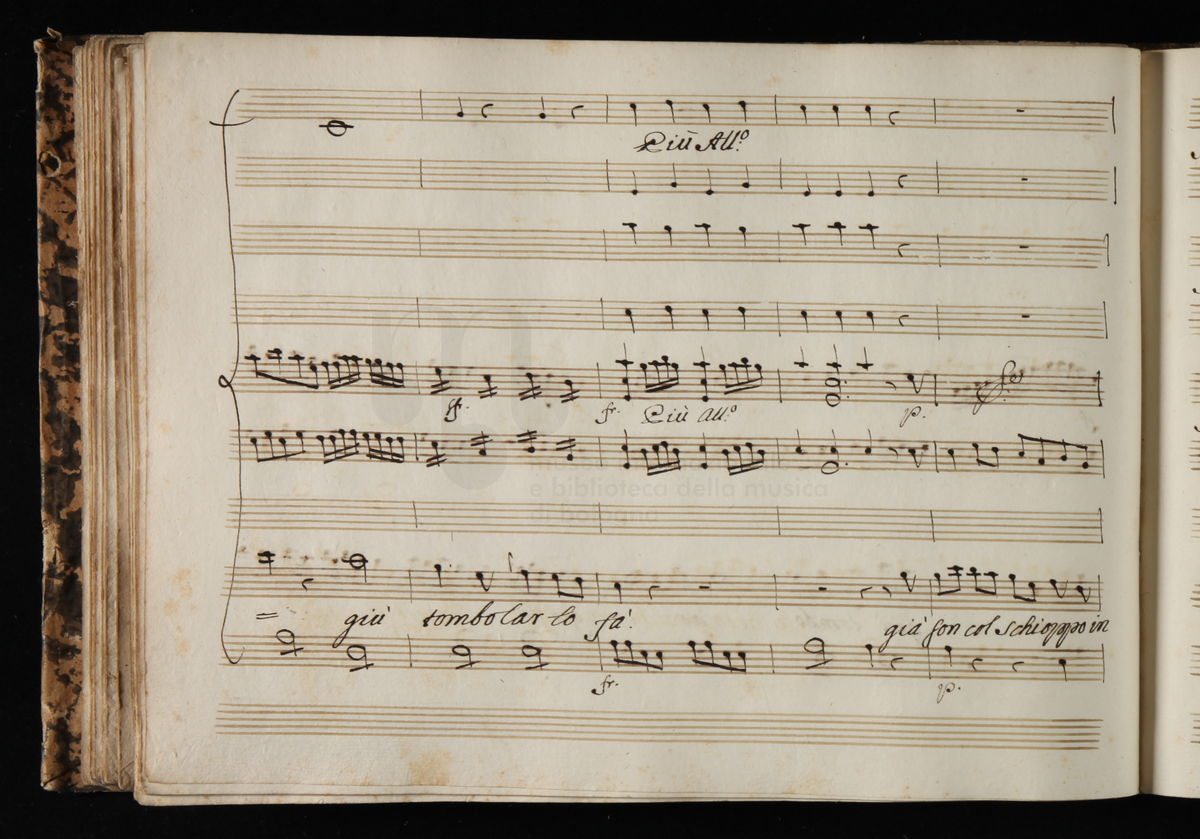 Più All.º
ff.
fr. Più All.º p.
e biblioteca della musica
di bologna
= giù tombolar lo fà. già son col schioppo in
fr. p.